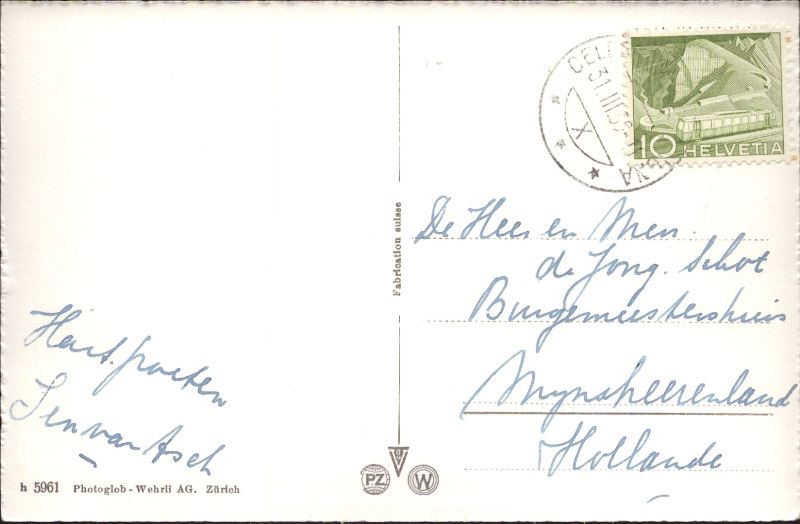 Hart. groeten
Jen van Asch
h 5961 Photoglob - Wehrli AG. Zürich
Fabrication suisse
PZ
W
CELE
31.III.5
X
NA
10 HELVETIA
De Heer en Mevr.
de Jong. Schot
Burgemeestershuis
Mynsheerenland
Hollande